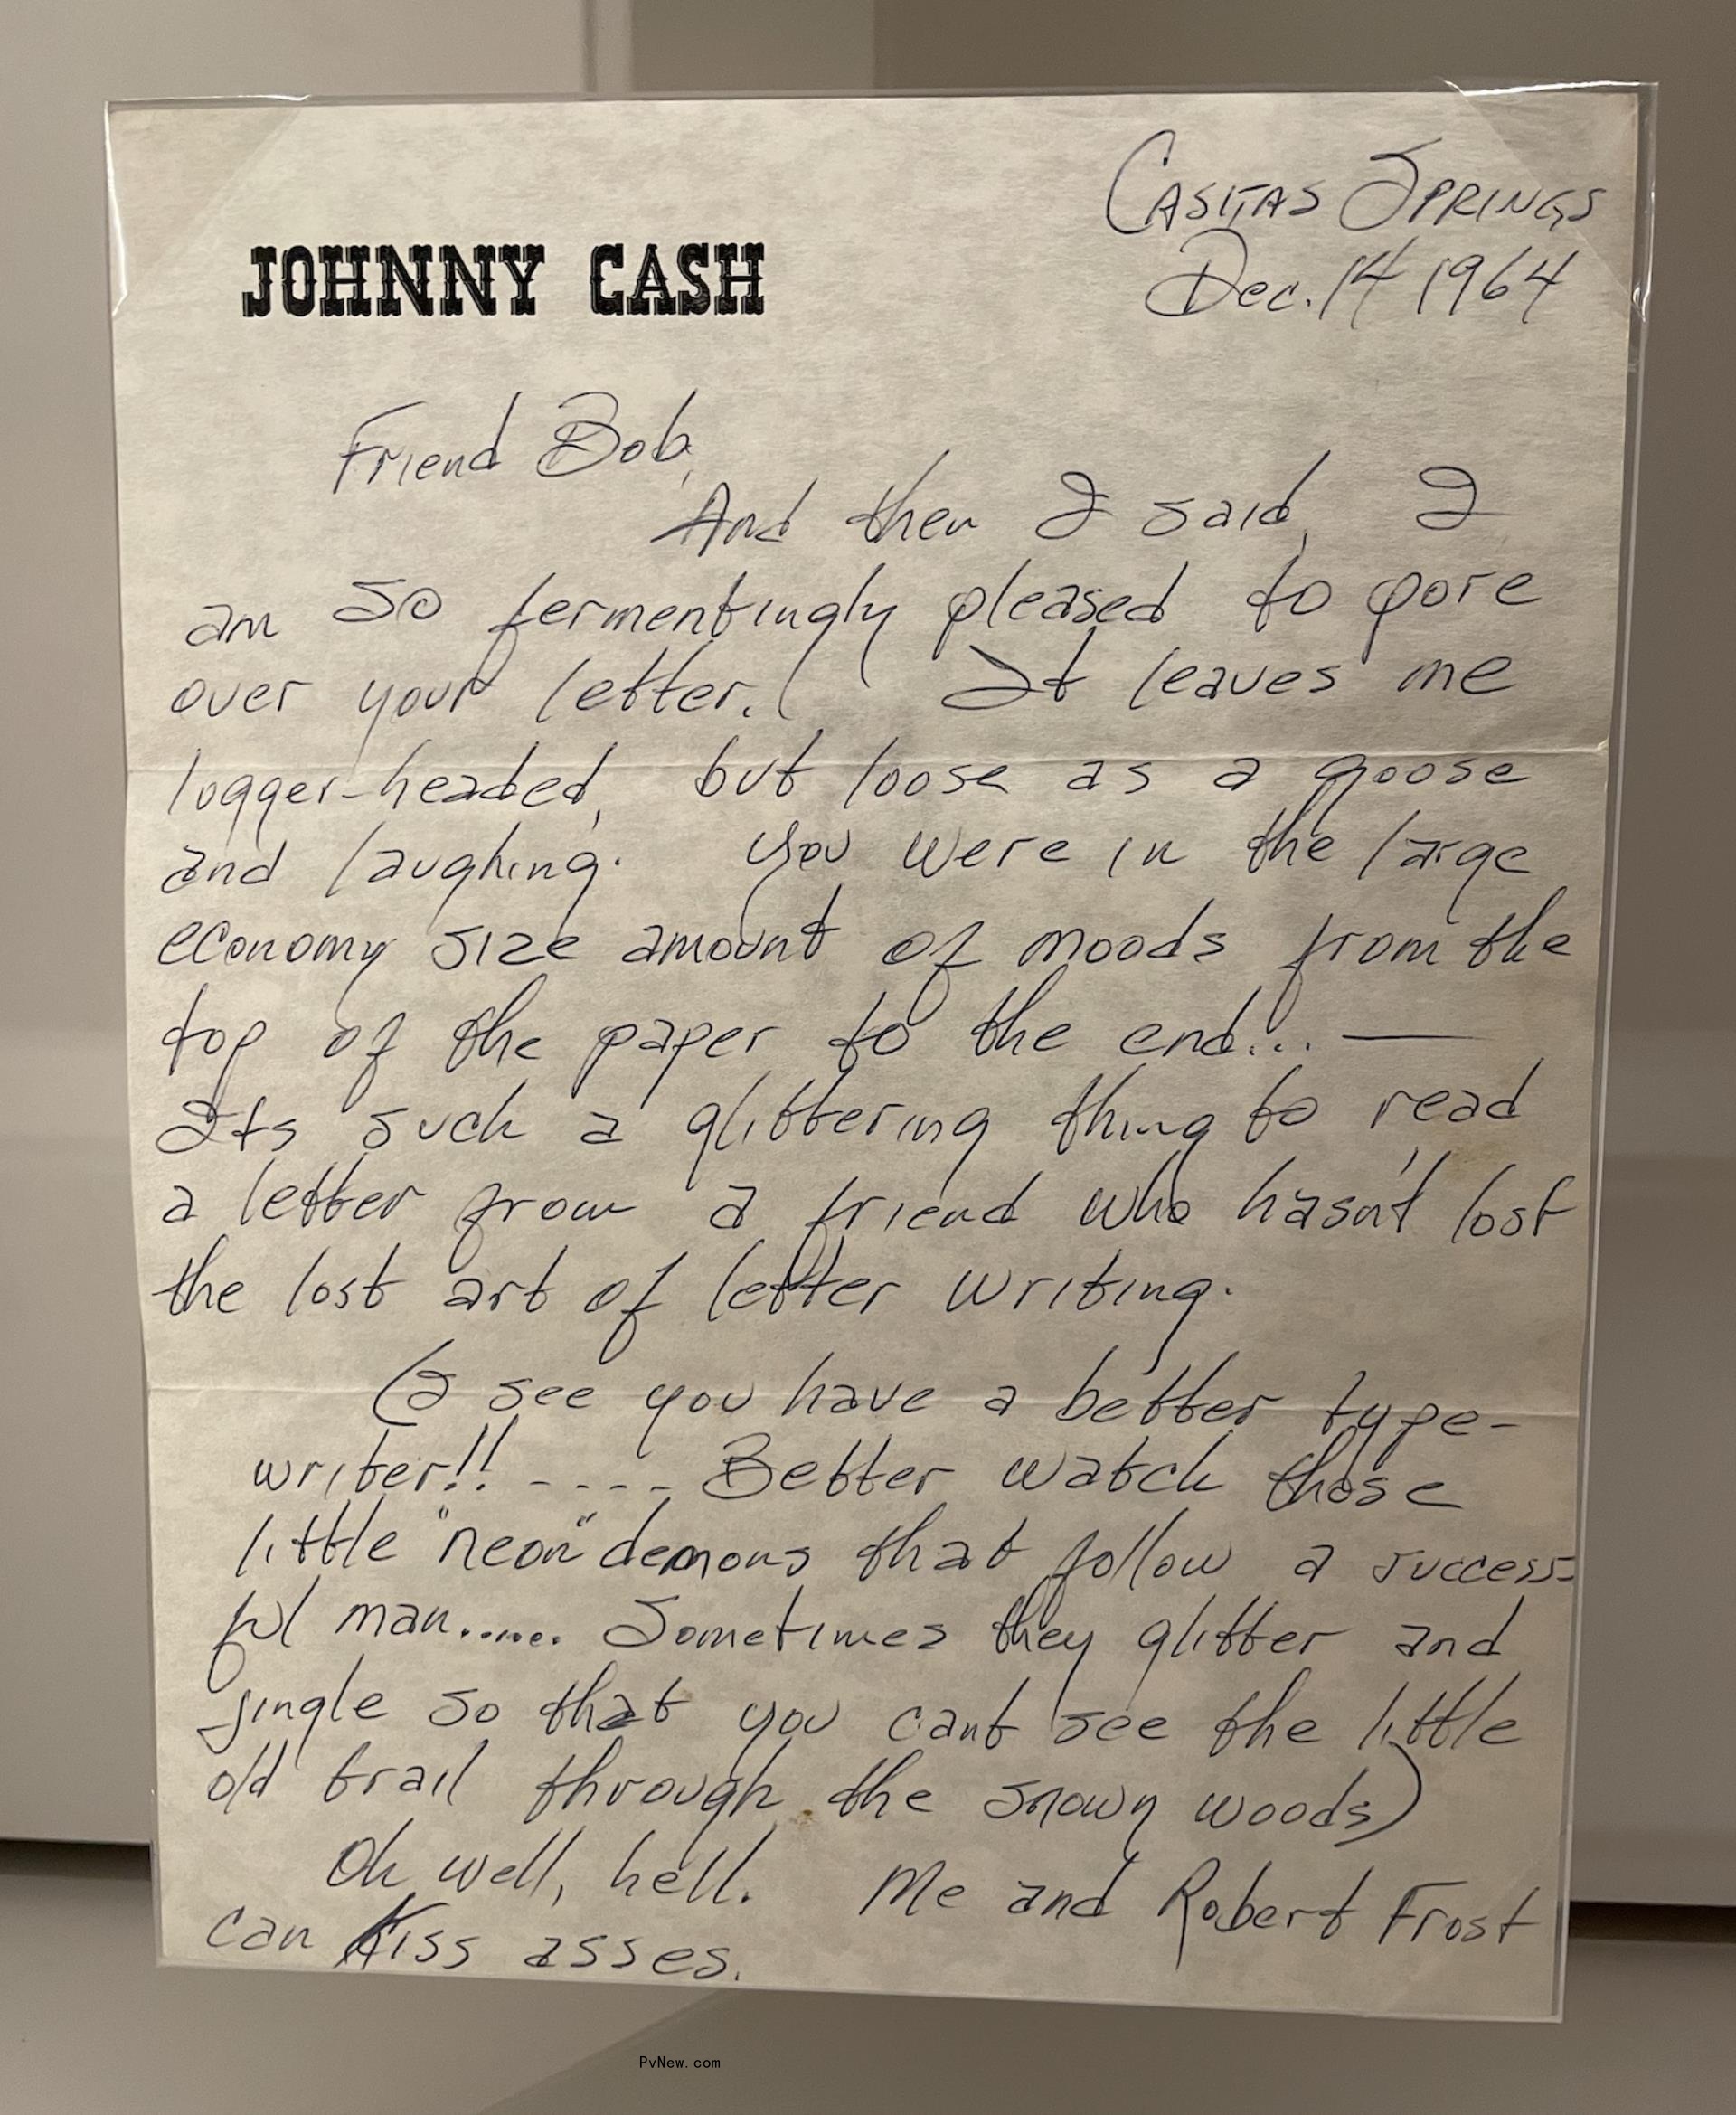 Casitas Springs
JOHNNY CASH
Dec. 14 1964
Friend Bob,
And then I said, I
am so fermentingly pleased to pore
over your letter. It leaves me
logger-headed, but loose as a goose
and laughing. You were in the large
economy size amount of moods from the
top of the paper to the end... —
Its such a glittering thing to read
a letter from a friend who hasn't lost
the lost art of letter writing.
(I see you have a better type-
writer!! - - - - Better watch those
little "neon" demons that follow a success-
ful man...... Sometimes they glitter and
jingle so that you cant see the little
old trail through the snowy woods)
Oh well, hell. Me and Robert Frost
can kiss asses.
PvNew.com